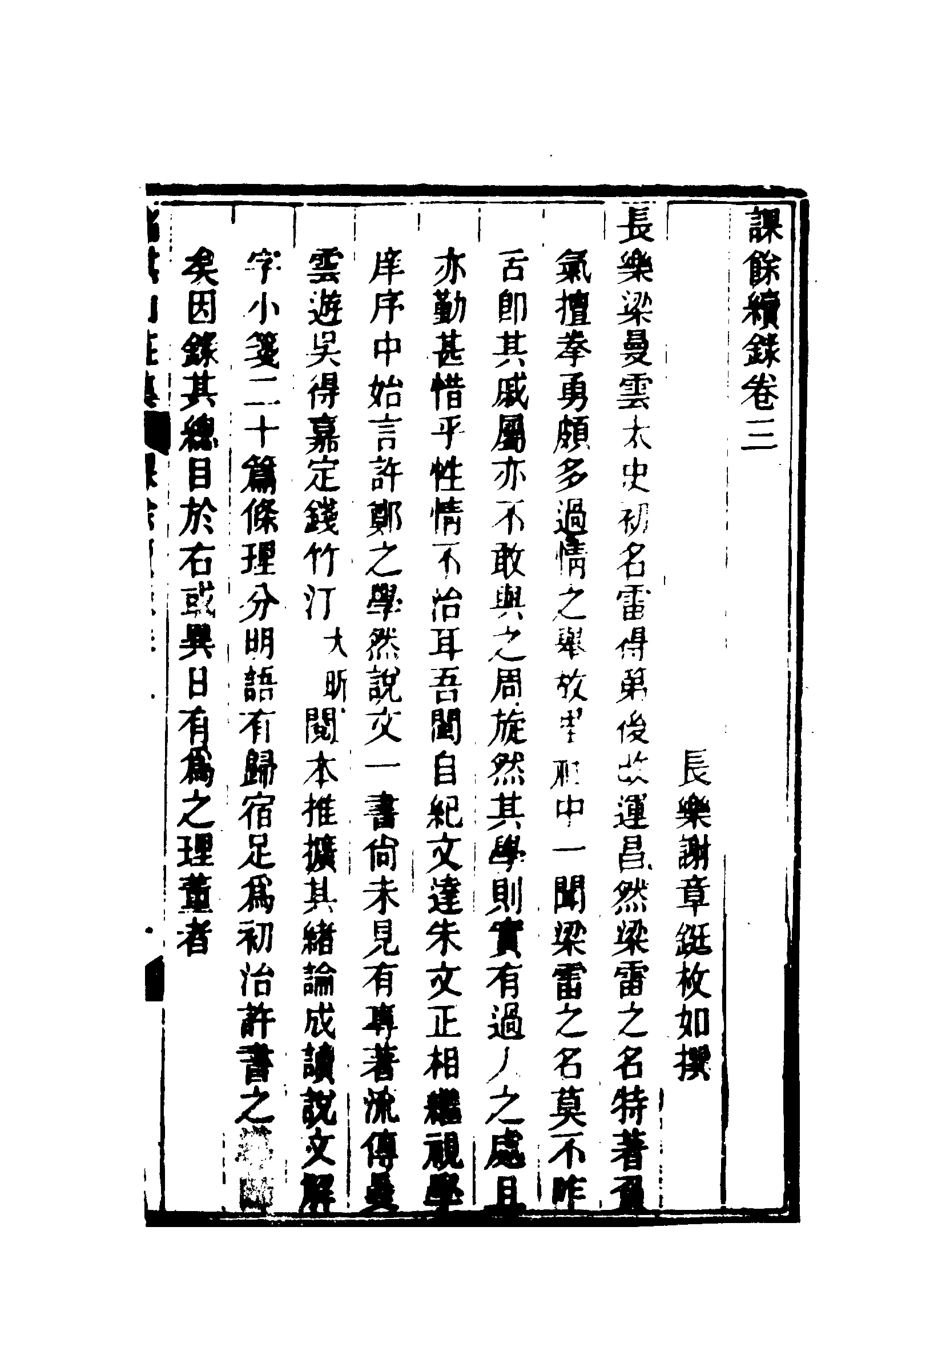 課餘續錄卷三
長樂謝章鋌枚如撰
長樂梁曼雲太史初名雷得第後改運昌然梁雷之名特著負
氣擅拳勇頗多過情之舉故里中一聞梁雷之名莫不咋
舌即其戚屬亦不敢與之周旋然其學則實有過人之處且
亦勤甚惜乎性情不治耳吾閩自紀文達朱文正相繼視學
庠序中始言許鄭之學然說文一書尙未見有專著流傳曼
雲遊吳得嘉定錢竹汀大昕閱本推擴其緒論成讀說文解
字小箋二十篇條理分明語有歸宿足爲初治許書之
矣因錄其總目於右或異日有爲之理董者